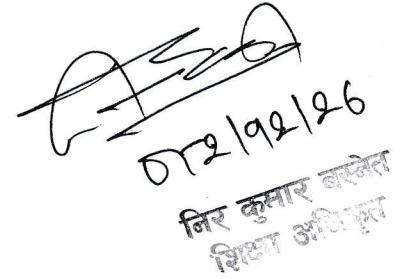 ०८२/१२/२७
निर कुमार बस्नेत
शिक्षा अधिकृत